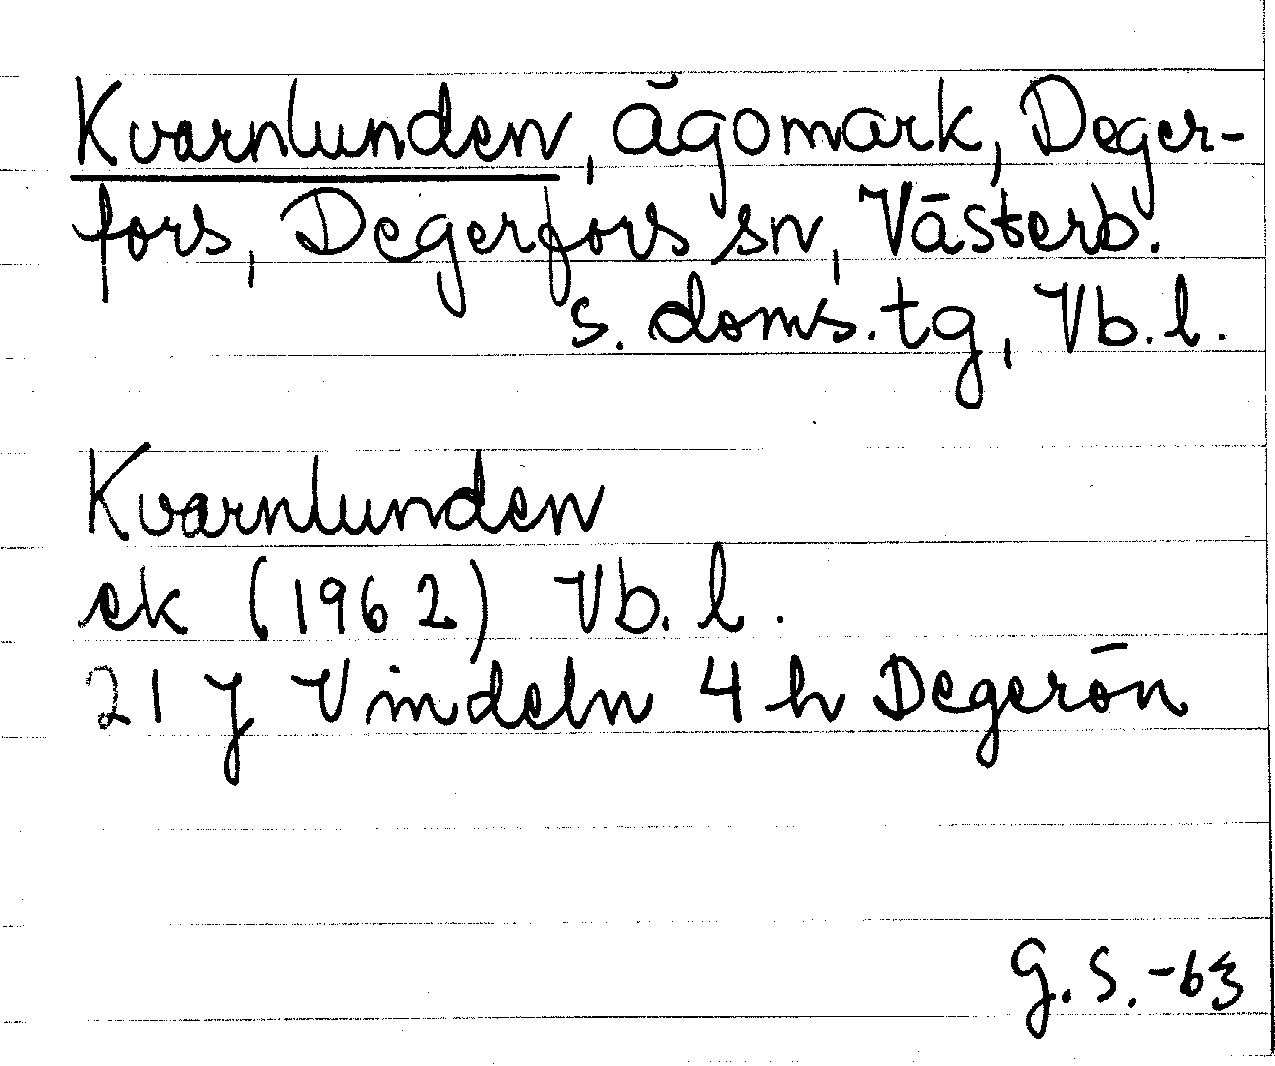 Kvarnlunden, ägomark, Deger-
fors, Degerfors sn, Västerb.
s. doms. tg, Vb. l.
Kvarnlunden
ek (1962) Vb. l.
21 J Vindeln 4 h Degerön
G. S. -63